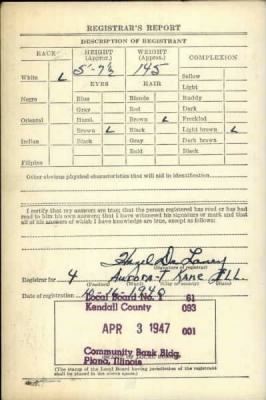 REGISTRAR'S REPORT
DESCRIPTION OF REGISTRANT
RACE HEIGHT (Approx.) WEIGHT (Approx.) COMPLEXION
5'-7½ 145
White L Sallow
EYES HAIR Light
Negro Blue Blonde Ruddy
Gray Red Dark
Oriental Hazel Brown L Freckled
Brown L Black Light brown L
Indian Black Gray Dark brown
Bald Black
Filipino
Other obvious physical characteristics that will aid in identification
I certify that my answers are true; that the person registered has read or has had
read to him his own answers; that I have witnessed his signature or mark and that
all of his answers of which I have knowledge are true, except as follows:
(Signature of registrar)
Registrar for 4 Aurora-T Kane ILL.
(Precinct) (Ward) (City or county) (State)
Date of registration 10-16-1940
Local Board No. 61
Kendall County 093
APR 3 1947 001
Community Bank Bldg.
Plano, Illinois
(The stamp of the Local Board having jurisdiction of the registrant
shall be placed in the above space.)